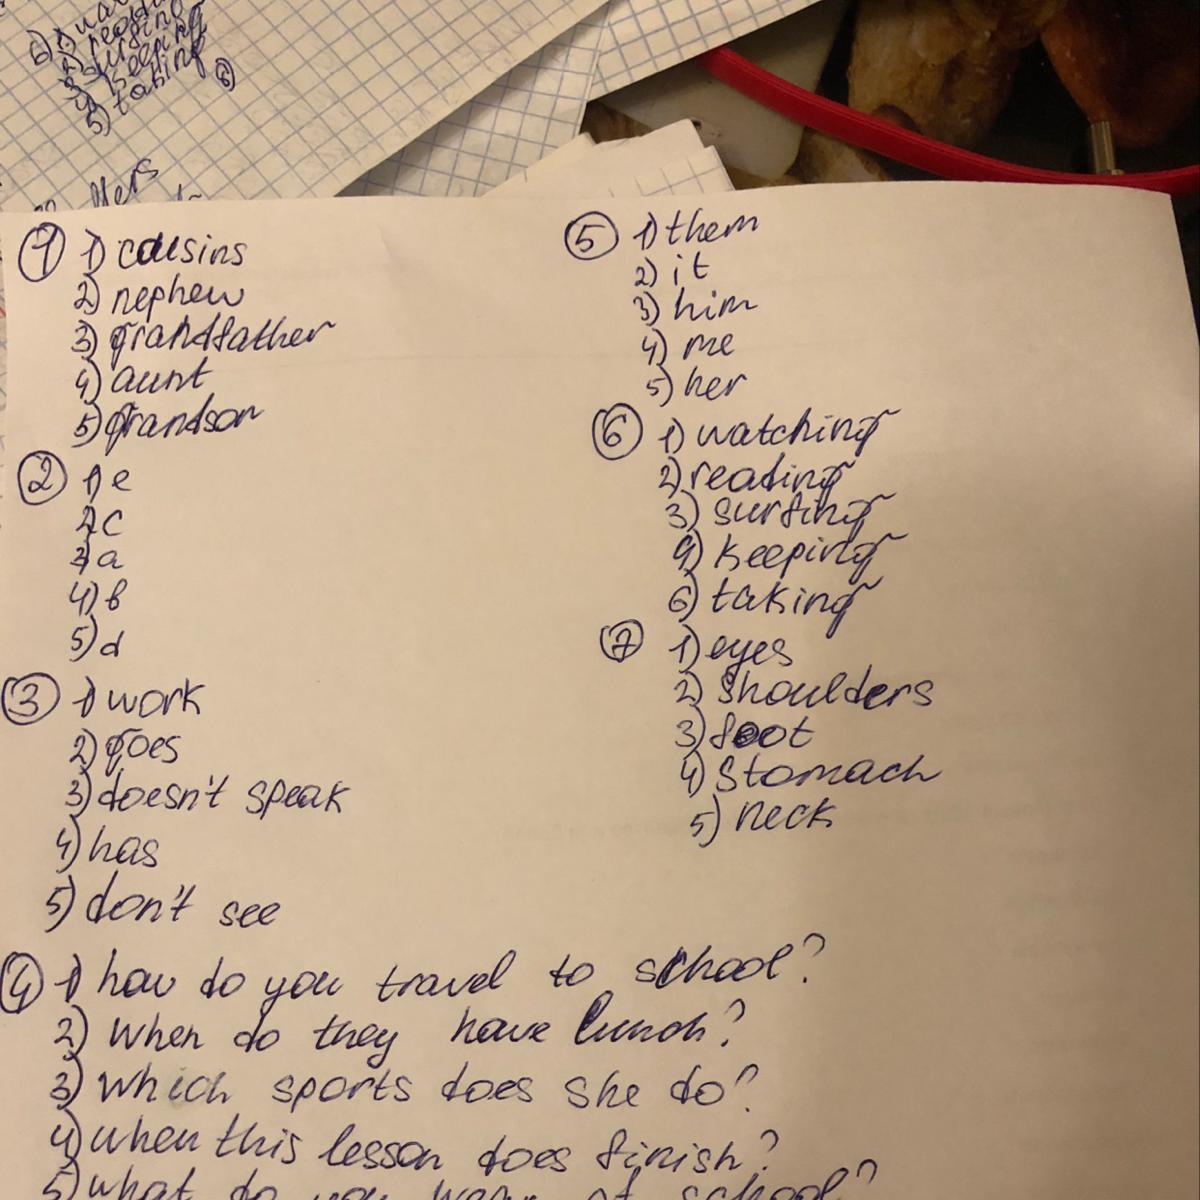 reading
surfing
keeping
5) taking
1 1) cousins
2) nephew
3) grandfather
4) aunt
5) grandson
2 1) e
2) c
3) a
4) b
5) d
3 1) work
2) goes
3) doesn't speak
4) has
5) don't see
4 1) how do you travel to school?
2) when do they have lunch?
3) which sports does she do?
4) when this lesson does finish?
5) what do you wear at school?
5 1) them
2) it
3) him
4) me
5) her
6 1) watching
2) reading
3) surfing
4) keeping
6) taking
7 1) eyes
2) shoulders
3) foot
4) stomach
5) neck